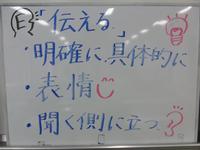 「伝える」
・明確に、具体的に
・表情
・聞く側に立つ